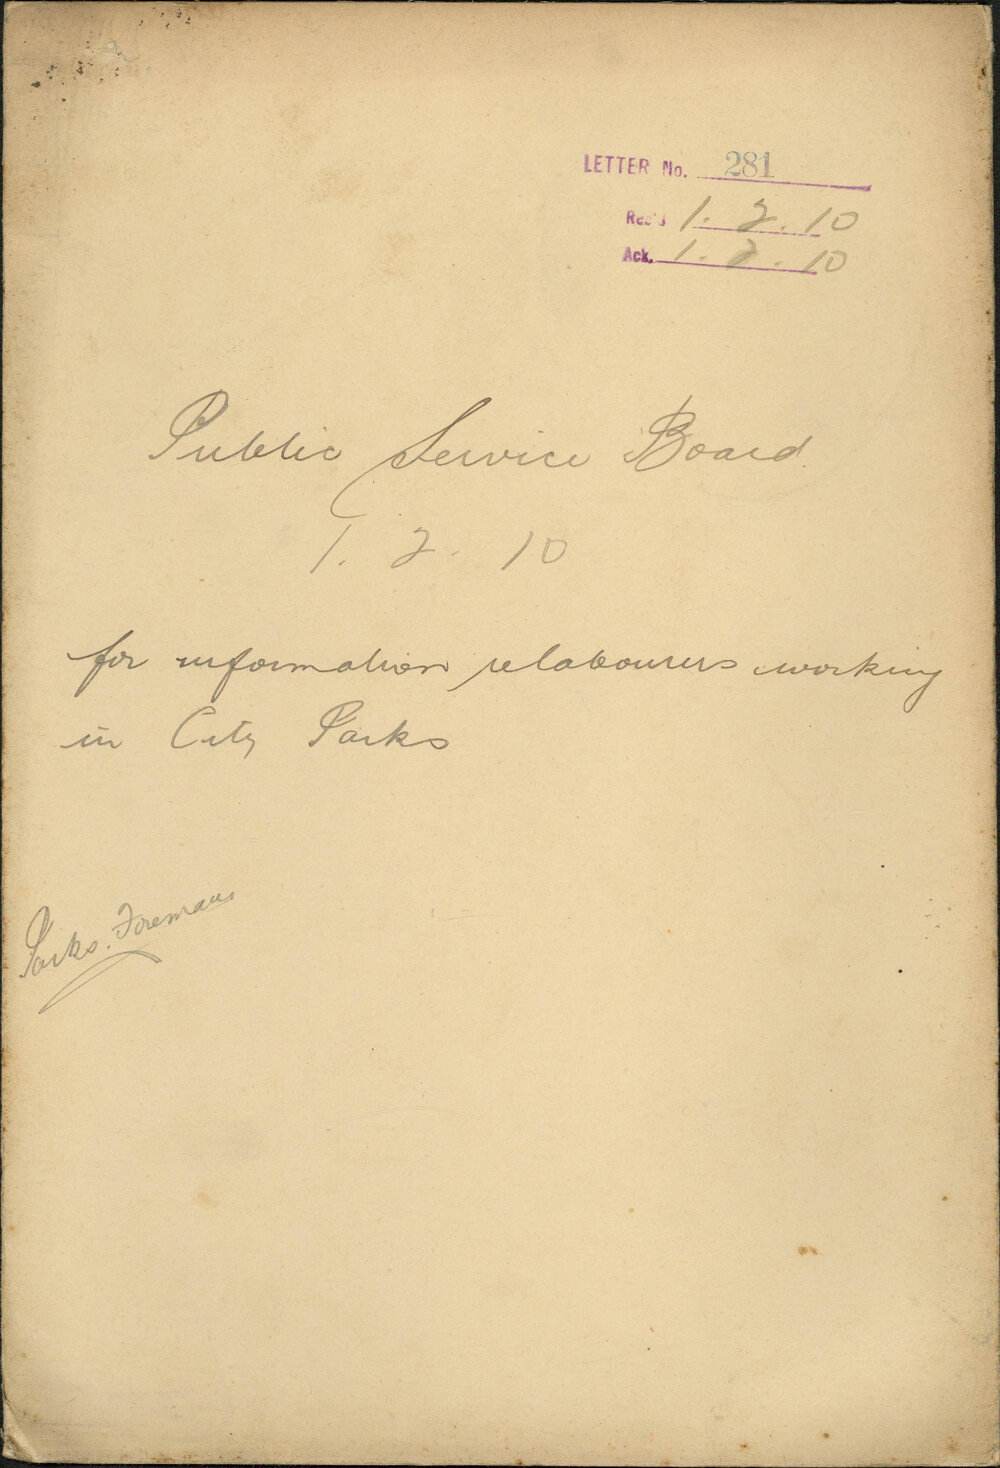 LETTER No. 281
Rec'd 1. 2. 10
Ack. 1. 2. 10
Public Service Board
1. 2. 10
for information re labourers working
in City Parks
Parks. Foreman